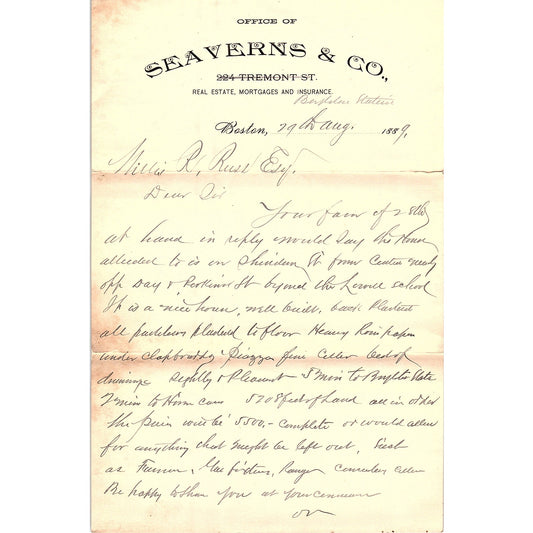 OFFICE OF
SEAVERNS & CO.,
224 TREMONT ST.
REAL ESTATE, MORTGAGES AND INSURANCE.
Station
Boston, 29th Aug. 1889,
Willis R, Russ Esq.
Dear Sir
Your favr of 28th
at hand in reply would say the House
alluded to is on Sheridan St from Centre nearly
opp Day & Perkins St beyond the Lowell school
It is a nice house, well built, back Plastered
all plastered to floor Heavy Rosin paper
under clapboards Piazza fine Celler best of
drainage Sightly & Pleasant 8 min to Station
2 min to Horse cars 5208 feet of Land all in order
the price will be 5500,- Complete or would allow
for anything that might be left out, Such
as Furnace, Gas fixtures, Range
Be happy to show you at your convenience